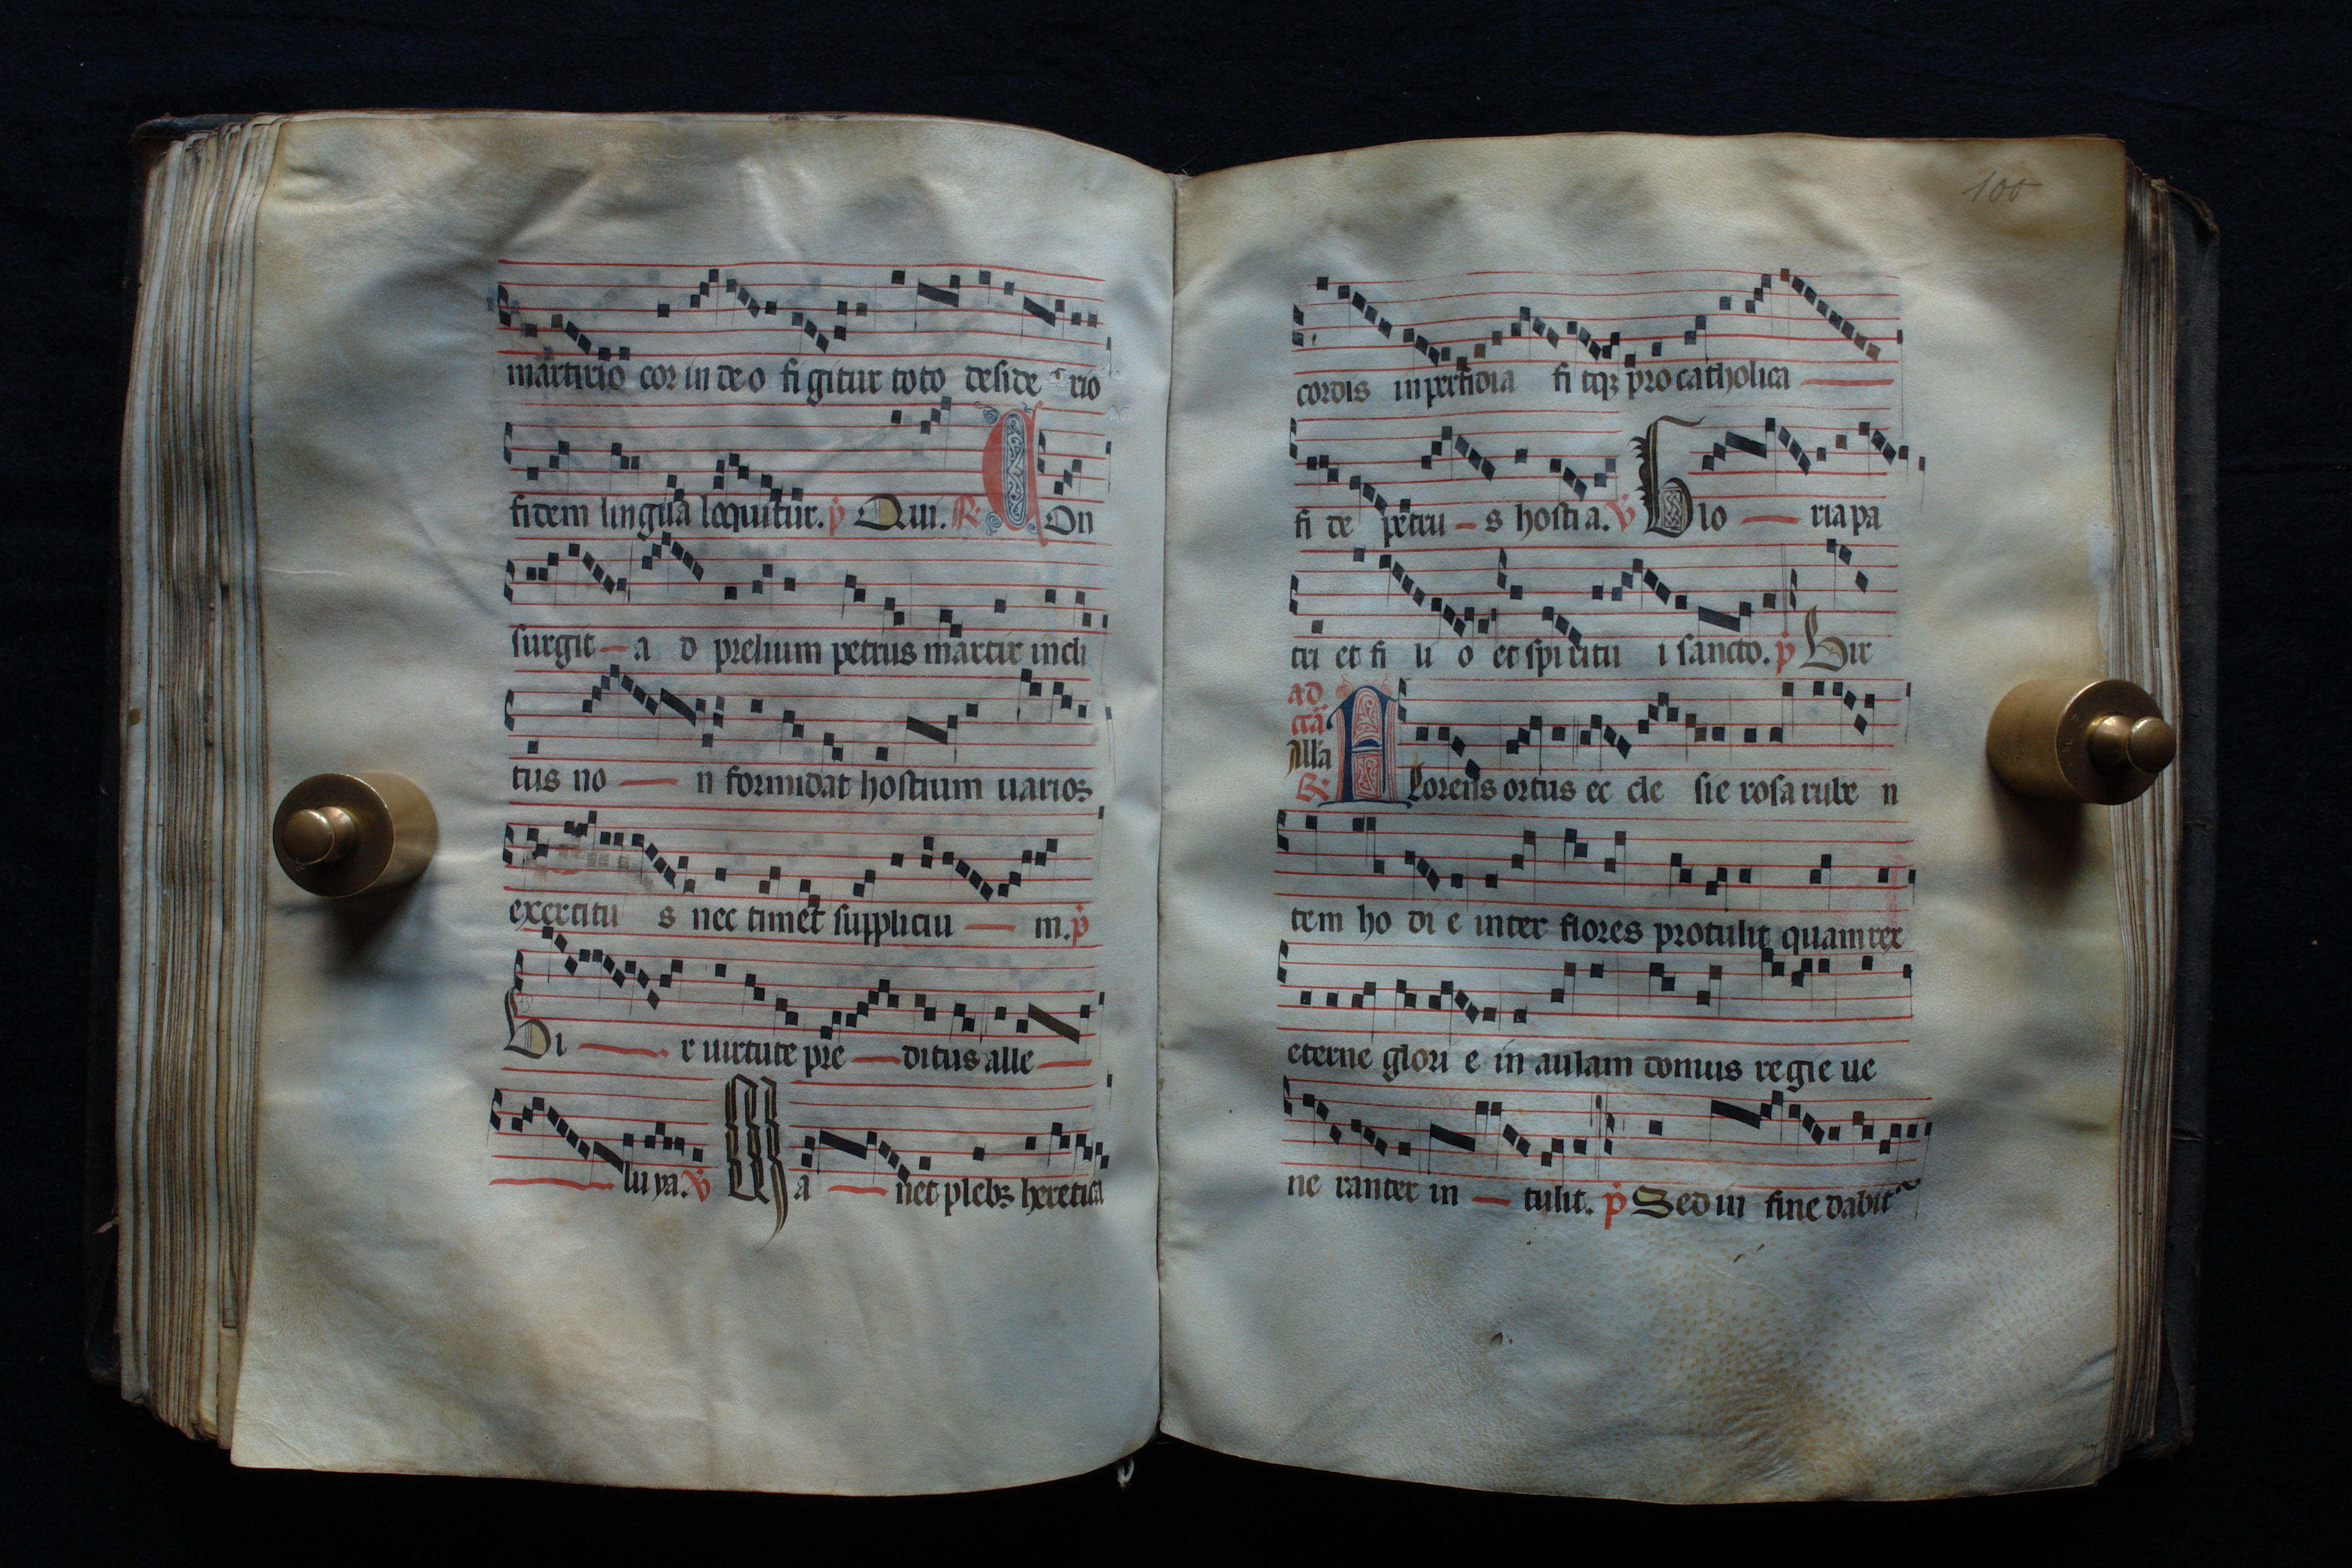 martirio cor in deo figitur toto deside rio
fidem lingua loquitur. p Qui. R Con
surgit a d prelium petrus martir incli
tus no n formidat hostium uarios
exercitu s nec timet suppliciu m. p
Vi r uirtute pre ditus alle
luya. V Ma net plebs heretica
100
cordis in perfidia fi tqꝫ pro catholica
fi de petru s hostia. V Glo ria pa
tri et fi li o et spiritu i sancto. p Vir
ad
Alla
R Florens ortus ec cle sie rosa rube n
tem ho di e inter flores protulit quam rex
eterne glori e in aulam domus regie ue
ne ranter in tulit. p Sed in fine dabit